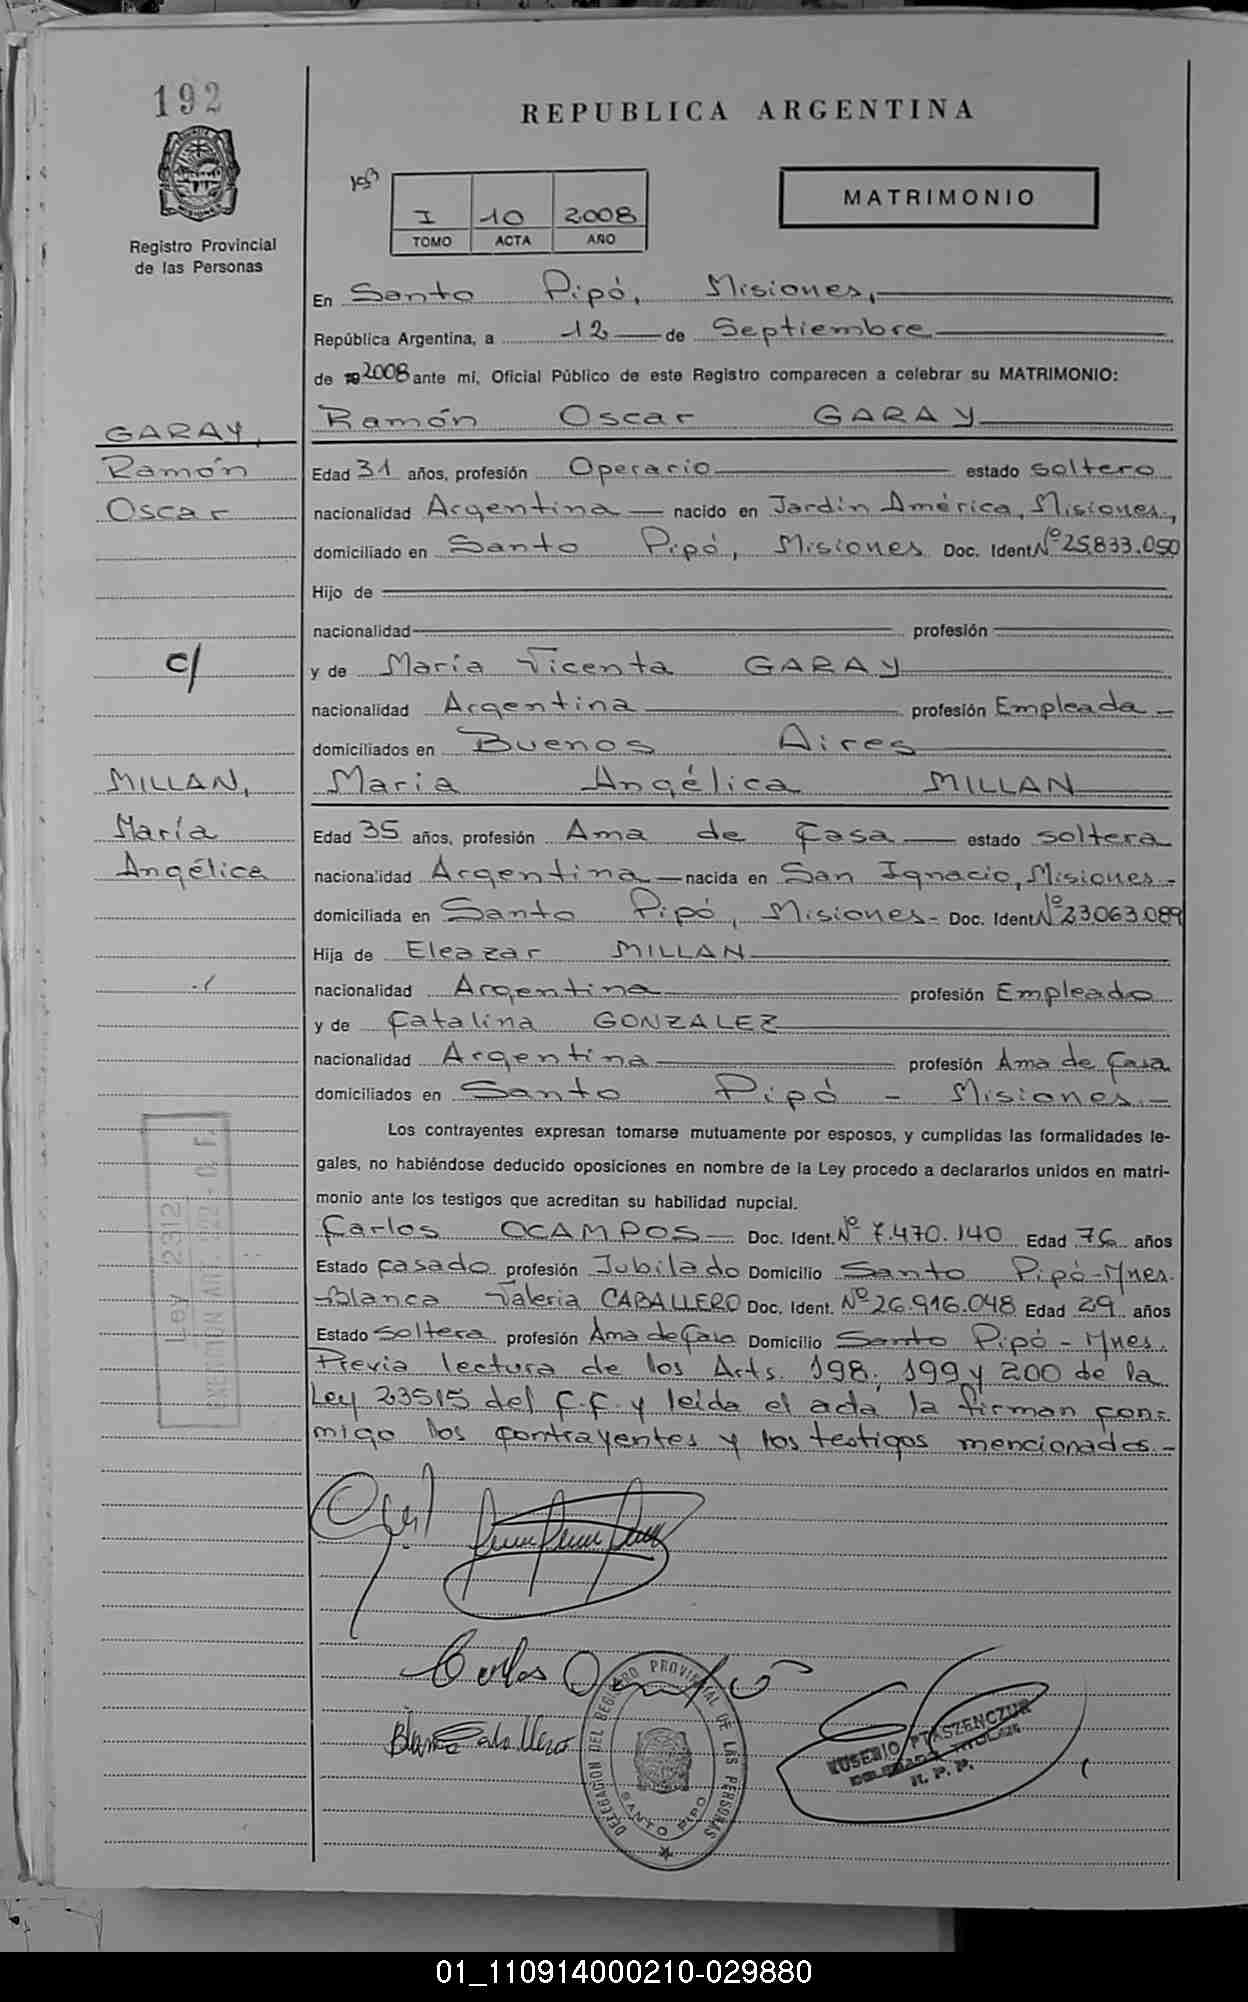 192
REPUBLICA ARGENTINA
I 10 2008
TOMO ACTA AÑO
MATRIMONIO
Registro Provincial
de las Personas
En Santo Pipó, Misiones,
República Argentina, a 12 de Septiembre
de 2008 ante mí, Oficial Público de este Registro comparecen a celebrar su MATRIMONIO:
Ramón Oscar GARAY
GARAY,
Ramón
Oscar
Edad 31 años, profesión Operario estado soltero
nacionalidad Argentina nacido en Jardín América, Misiones,
domiciliado en Santo Pipó, Misiones Doc. Ident. Nº 25.833.050
Hijo de
nacionalidad profesión
c/
y de María Vicenta GARAY
nacionalidad Argentina profesión Empleada -
domiciliados en Buenos Aires
MILLAN,
María
Angélica
María Angélica MILLAN
Edad 35 años, profesión Ama de Casa estado soltera
nacionalidad Argentina nacida en San Ignacio, Misiones -
domiciliada en Santo Pipó, Misiones - Doc. Ident. Nº 23.063.089
Hija de Eleazar MILLAN
nacionalidad Argentina profesión Empleado
y de Catalina GONZALEZ
nacionalidad Argentina profesión Ama de Casa
domiciliados en Santo Pipó - Misiones.-
Los contrayentes expresan tomarse mutuamente por esposos, y cumplidas las formalidades le-
gales, no habiéndose deducido oposiciones en nombre de la Ley procedo a declararlos unidos en matri-
monio ante los testigos que acreditan su habilidad nupcial.
Carlos OCAMPOS Doc. Ident. Nº 7.470.140 Edad 76 años
Estado casado profesión Jubilado Domicilio Santo Pipó - Mnes.
Blanca Valeria CABALLERO Doc. Ident. Nº 26.916.048 Edad 29 años
Estado soltera profesión Ama de Casa Domicilio Santo Pipó - Mnes.
Previa lectura de los Arts. 198, 199 y 200 de la
Ley 23515 del C.C. y leída el acta la firman con-
migo los contrayentes y los testigos mencionados.-
Ley 2312
EXENCION ART.
Carlos
Blanca Caballero
DELEGACION DEL REGISTRO PROVINCIAL DE LAS PERSONAS
SANTO PIPO
EUSEBIO PTASZENCZUK
DELEGADO TITULAR
R. P. P.
01_110914000210-029880